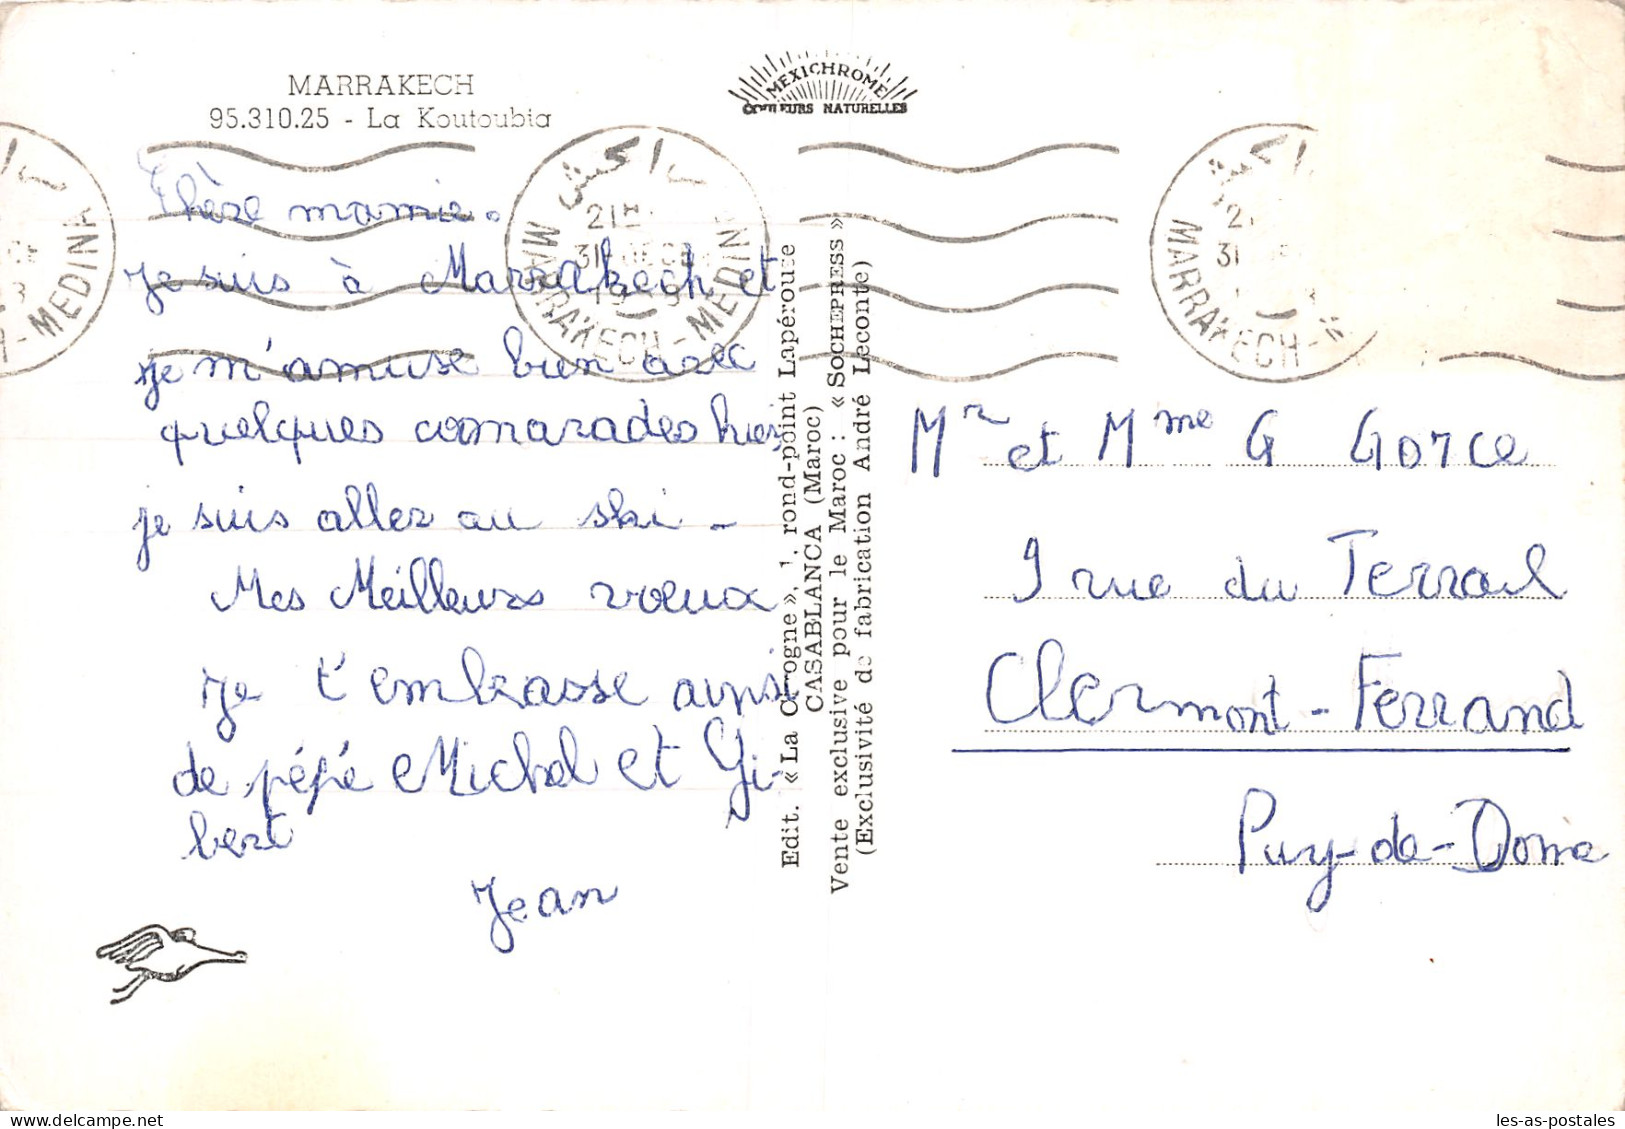 MARRAKECH
95.310.25 - La Koutoubia
MEXICHROME
COULEURS NATURELLES
مراكش
21H
31 DEC
MARRAKECH-MEDINA
MARRAKECH-M
-MEDINA
Chère mamie.
je suis à Marrakech et
je m'amuse bien avec
quelques camarades hier
je suis aller au ski -
Mes Meilleurs voeux
Je t'embrasse ainsi
de pépé Michel et Gi-
bert
Jean
Edit. « La Cigogne », 1, rond-point Lapérouse
CASABLANCA (Maroc)
Vente exclusive pour le Maroc : « SOCHEPRESS »
(Exclusivité de fabrication André Leconte)
Mr et Mme G GORCE
9 rue du Terrail
Clermont-Ferrand
Puy-de-Dome
les-as-postales